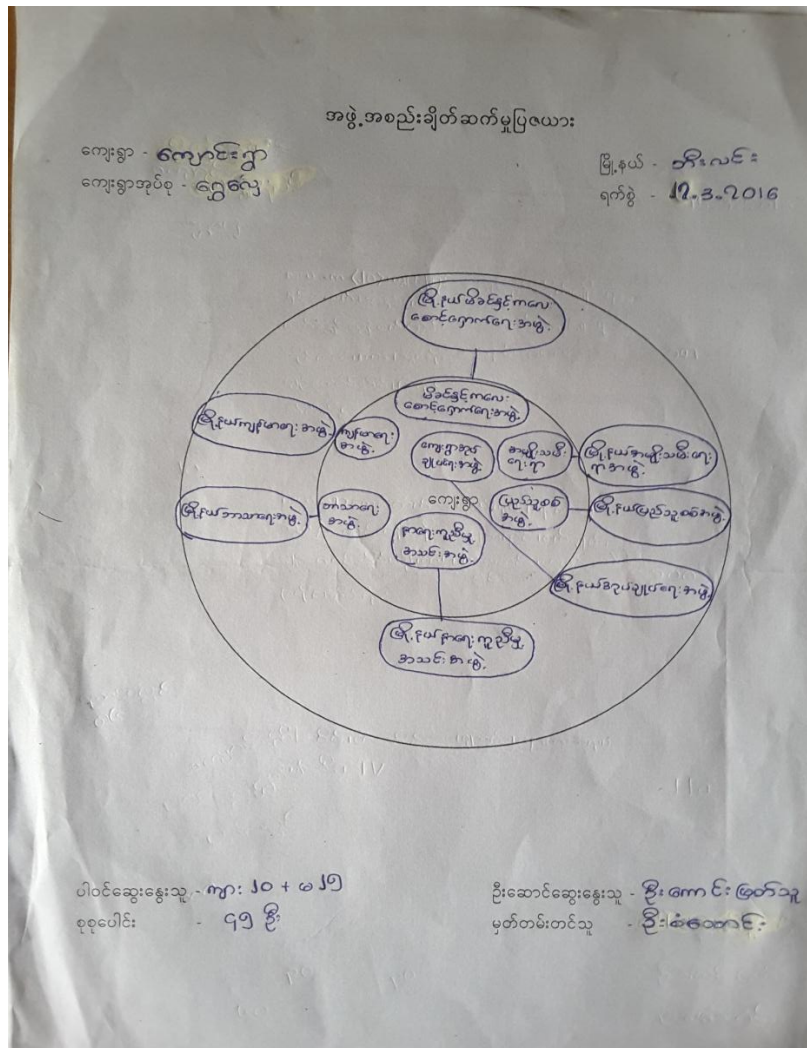 အဖွဲ့အစည်းချိတ်ဆက်မှုပြဇယား
ကျေးရွာ - ကျောင်းရွာ
မြို့နယ် - ဘီးလင်း
ကျေးရွာအုပ်စု - ရွှေလှေ
ရက်စွဲ - 12.3.2016
မြို့နယ်မိခင်နှင့်ကလေး
စောင့်ရှောက်ရေးအဖွဲ့
မိခင်နှင့်ကလေး
စောင့်ရှောက်ရေးအဖွဲ့
မြို့နယ်ကျန်းမာရေးအဖွဲ့
ကျန်းမာရေး
အဖွဲ့
ကျေးရွာအုပ်
ချုပ်ရေးအဖွဲ့
အမျိုးသမီး
ရေးရာ
မြို့နယ်အမျိုးသမီးရေး
ရာအဖွဲ့
မြို့နယ်ဘာသာရေးအဖွဲ့
ဘာသာရေး
အဖွဲ့
ကျေးရွာ
ပြည်သူ့စစ်
အဖွဲ့
မြို့နယ်ပြည်သူ့စစ်အဖွဲ့
နာရေးကူညီမှု
အသင်းအဖွဲ့
မြို့နယ်အုပ်ချုပ်ရေးအဖွဲ့
မြို့နယ်နာရေးကူညီမှု
အသင်းအဖွဲ့
ပါဝင်ဆွေးနွေးသူ - ကျား ၂၀ + မ ၂၅
ဦးဆောင်ဆွေးနွေးသူ - ဦးကောင်းမြတ်သူ
စုစုပေါင်း - ၄၅ ဦး
မှတ်တမ်းတင်သူ - ဦးစံထောင်း